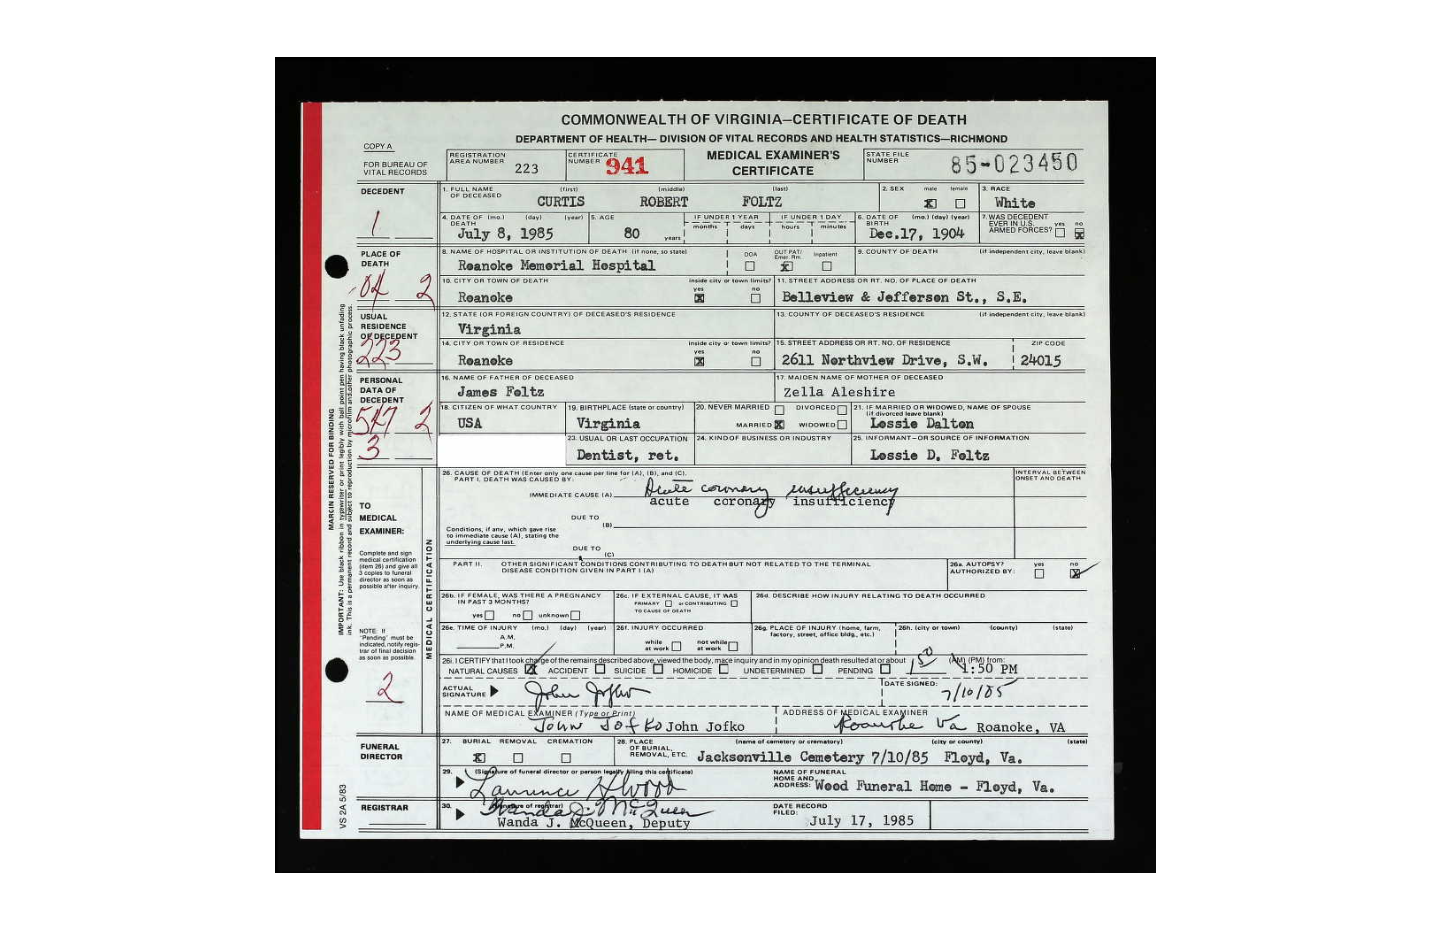 COMMONWEALTH OF VIRGINIA—CERTIFICATE OF DEATH
DEPARTMENT OF HEALTH— DIVISION OF VITAL RECORDS AND HEALTH STATISTICS—RICHMOND
COPY A
FOR BUREAU OF VITAL RECORDS
REGISTRATION AREA NUMBER 223
CERTIFICATE NUMBER 941
MEDICAL EXAMINER'S CERTIFICATE
STATE FILE NUMBER 85-023450
DECEDENT
1
1. FULL NAME OF DECEASED (first) (middle) (last)
CURTIS ROBERT FOLTZ
2. SEX male female
3. RACE
White
4. DATE OF DEATH (mo.) (day) (year)
July 8, 1985
5. AGE
80 years
IF UNDER 1 YEAR months days
IF UNDER 1 DAY hours minutes
6. DATE OF BIRTH (mo.) (day) (year)
Dec.17, 1904
7. WAS DECEDENT EVER IN U.S. ARMED FORCES? yes no
PLACE OF DEATH
04 2
8. NAME OF HOSPITAL OR INSTITUTION OF DEATH (if none, so state)
Roanoke Memorial Hospital
DOA OUT PAT/ Emer. Rm. Inpatient
9. COUNTY OF DEATH (if independent city, leave blank)
10. CITY OR TOWN OF DEATH
Roanoke
inside city or town limits? yes no
11. STREET ADDRESS OR RT. NO. OF PLACE OF DEATH
Belleview & Jefferson St., S.E.
USUAL RESIDENCE OF DECEDENT
223
12. STATE (OR FOREIGN COUNTRY) OF DECEASED'S RESIDENCE
Virginia
13. COUNTY OF DECEASED'S RESIDENCE (if independent city, leave blank)
14. CITY OR TOWN OF RESIDENCE
Roanoke
inside city or town limits? yes no
15. STREET ADDRESS OR RT. NO. OF RESIDENCE
2611 Northview Drive, S.W.
ZIP CODE
24015
PERSONAL DATA OF DECEDENT
547 2
3
16. NAME OF FATHER OF DECEASED
James Foltz
17. MAIDEN NAME OF MOTHER OF DECEASED
Zella Aleshire
18. CITIZEN OF WHAT COUNTRY
USA
19. BIRTHPLACE (state or country)
Virginia
20. NEVER MARRIED DIVORCED
MARRIED WIDOWED
21. IF MARRIED OR WIDOWED, NAME OF SPOUSE (if divorced leave blank)
Lossie Dalton
23. USUAL OR LAST OCCUPATION
Dentist, ret.
24. KIND OF BUSINESS OR INDUSTRY
25. INFORMANT—OR SOURCE OF INFORMATION
Lossie D. Foltz
MARGIN RESERVED FOR BINDING
IMPORTANT: Use black ribbon in typewriter or print legibly with ball point pen having black unfading
ink. This is a permanent record and subject to reproduction by microfilm and other photographic process.
VS 2A 5/83
TO MEDICAL EXAMINER:
Complete and sign medical certification (item 26) and give all 3 copies to funeral director as soon as possible after inquiry.
NOTE: If "Pending" must be indicated, notify registrar of final decision as soon as possible.
2
MEDICAL CERTIFICATION
26. CAUSE OF DEATH (Enter only one cause per line for (A), (B), and (C).
PART I. DEATH WAS CAUSED BY:
INTERVAL BETWEEN ONSET AND DEATH
IMMEDIATE CAUSE (A)
Acute coronary insufficiency
acute coronary insufficiency
DUE TO (B)
Conditions, if any, which gave rise to immediate cause (A), stating the underlying cause last.
DUE TO (C)
PART II. OTHER SIGNIFICANT CONDITIONS CONTRIBUTING TO DEATH BUT NOT RELATED TO THE TERMINAL DISEASE CONDITION GIVEN IN PART I (A)
26a. AUTOPSY? AUTHORIZED BY: yes no
26b. IF FEMALE, WAS THERE A PREGNANCY IN PAST 3 MONTHS?
yes no unknown
26c. IF EXTERNAL CAUSE, IT WAS
PRIMARY or CONTRIBUTING
TO CAUSE OF DEATH
26d. DESCRIBE HOW INJURY RELATING TO DEATH OCCURRED
26e. TIME OF INJURY (mo.) (day) (year)
A.M.
P.M.
26f. INJURY OCCURRED
while at work not while at work
26g. PLACE OF INJURY (home, farm, factory, street, office bldg., etc.)
26h. (city or town) (county) (state)
26i. I CERTIFY that I took charge of the remains described above, viewed the body, made inquiry and in my opinion death resulted at or about 150 (AM) (PM) from:
NATURAL CAUSES ACCIDENT SUICIDE HOMICIDE UNDETERMINED PENDING 1:50 PM
ACTUAL SIGNATURE John Jofko
DATE SIGNED: 7/10/85
NAME OF MEDICAL EXAMINER (Type or Print)
John Jofko John Jofko
ADDRESS OF MEDICAL EXAMINER
Roanoke Va Roanoke, VA
FUNERAL DIRECTOR
27. BURIAL REMOVAL CREMATION
28. PLACE OF BURIAL, REMOVAL, ETC. (name of cemetery or crematory) (city or county) (state)
Jacksonville Cemetery 7/10/85 Floyd, Va.
29. (Signature of funeral director or person legally filing this certificate)
Lawrence H Wood
NAME OF FUNERAL HOME AND ADDRESS: Wood Funeral Home - Floyd, Va.
REGISTRAR
30. (Signature of registrar)
Wanda J. McQueen
Wanda J. McQueen, Deputy
DATE RECORD FILED:
July 17, 1985